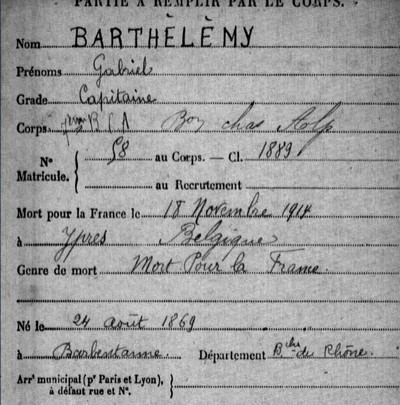 PARTIE A REMPLIR PAR LE CORPS.
Nom BARTHÈLÈMY
Prénoms Gabriel
Grade Capitaine
Corps Bon chas Alp
No Matricule. 58 au Corps. — Cl. 1889
au Recrutement
Mort pour la France le 18 Novembre 1914
à Ypres Belgique
Genre de mort Mort Pour la France.
Né le 24 août 1869
à Barbentanne. Département B. ches de Rhône.
Arrt municipal (pr Paris et Lyon),
à défaut rue et No.